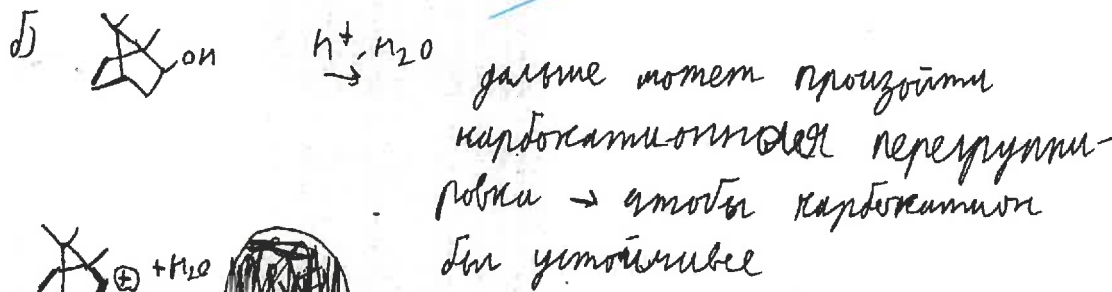 б)
OH
H+, H2O
→
дальше может произойти
карбокатионная перегруппи-
ровка → чтобы карбокатион
был устойчивее
⊕ +H2O